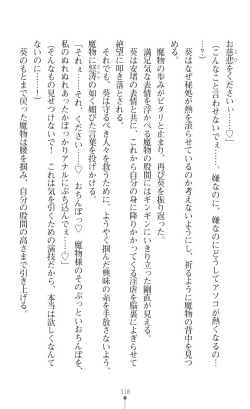 お慈悲をくださいぃ……♡」
（こんなこと言わせないでぇ……。嫌なのに、嫌なのにどうしてアソコが熱くなるの…
…？）
　葵はなぜ秘処が熱を滾らせているのか考えないようにし、祈るように魔物の背中を見つ
める。
　魔物の歩みがピタリと止まり、再び葵を振り返った。
　満足気な表情を浮かべる魔物の股間にはギンギンにいきり立った剛直が見える。
　葵は安堵の表情と共に、これから自分の身に降りかかってくる淫虐を脳裏によぎらせて
絶望に叩き落とされる。
　それでも、葵は守るべき人々を救うために、ようやく掴んだ興味の糸を手放さないよう、
魔物に怒濤の如く媚びた言葉を投げかける。
「それぇ……それ、ください……♡　おちんぽっ♡　魔物様のそのぶっといおちんぽを、
私のぬれぬれあったかぽっかりアナルにぶち込んでぇ……♡」
（そんなもの見せつけないで！　これは気を引くための演技だから、本当は欲しくなんて
ないのに……！）
　葵のもとまで戻った魔物は腰を掴み、自分の股間の高さまで引き上げる。
318